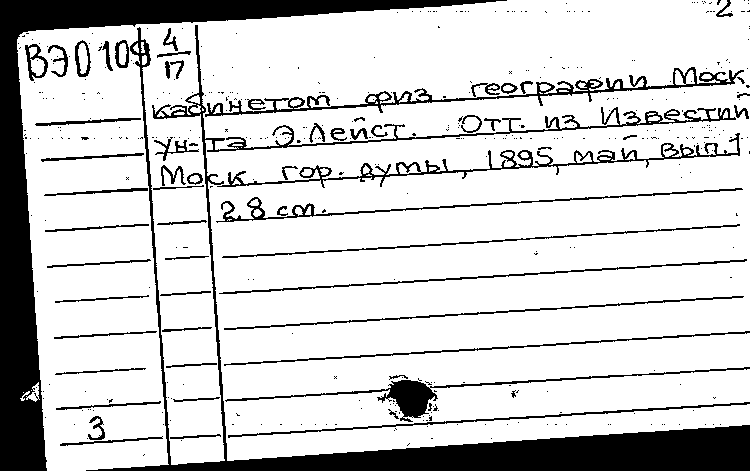 2
ВЭО 109 4/17
кабинетом физ. географии Моск.
ун-та Э.Лейст. Отт. из Известий
Моск. гор. думы, 1895, май, вып.1.
2.8 cm.
3